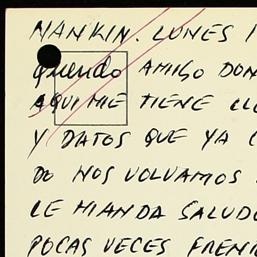 NANKIN. LUNES 1
Querido AMIGO DON
AQUI ME TIENE
Y DATOS QUE YA
DO NOS VOLVAMOS
LE MANDA SALUDO
POCAS VECES